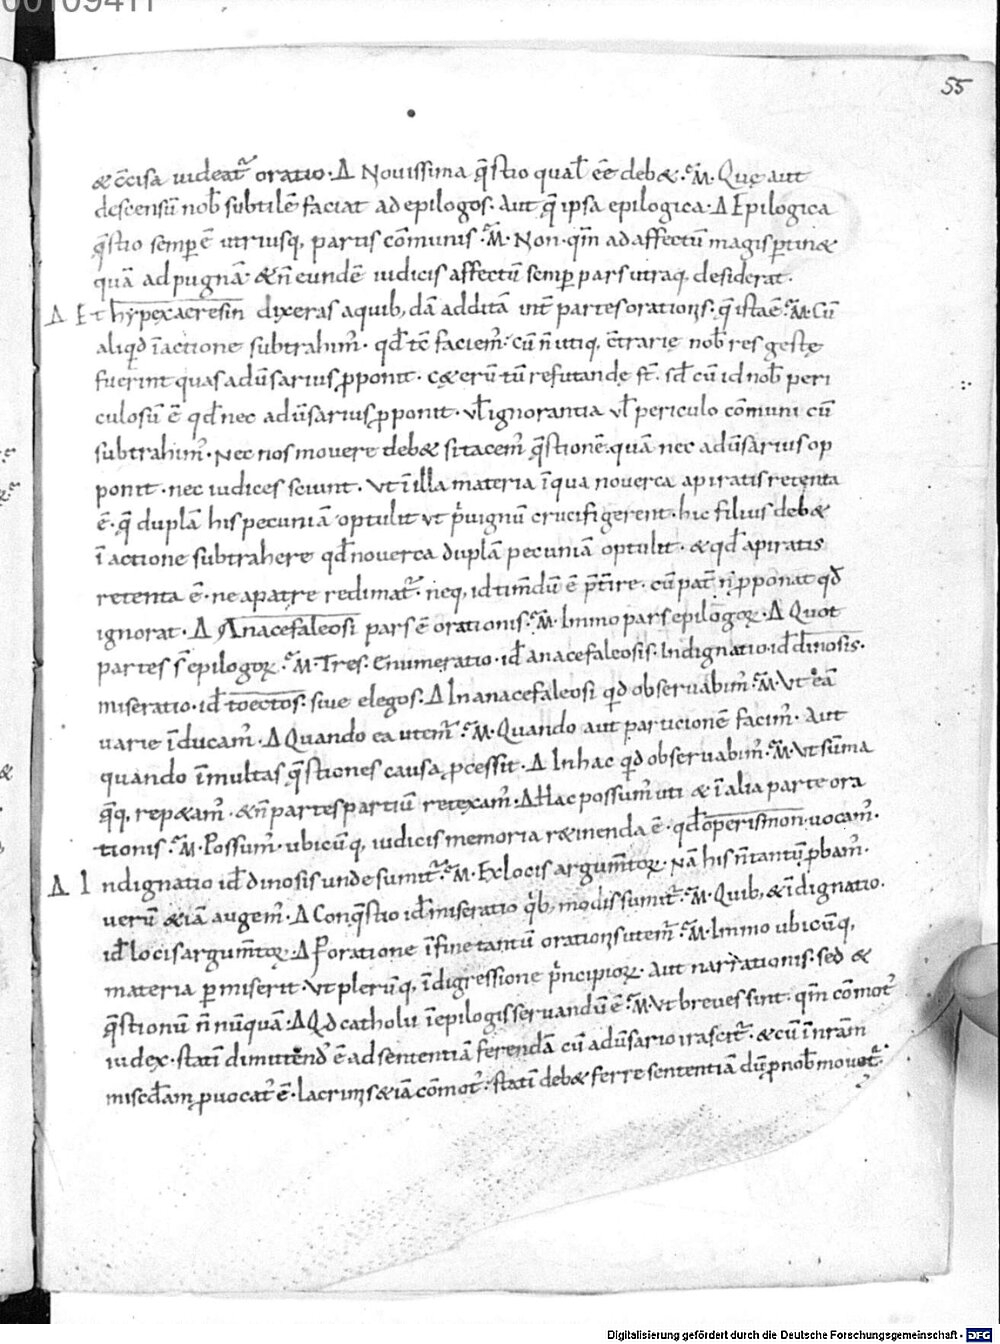 00109411
55
& c̄cisa uideat᷑ oratio · Δ Nouissima q̄stio qual̄ ēē deb& · M̃ · Quę aut
descensū nob̄ subtilē faciat ad epilogos · Aut q̄ ipsa epilogica · Δ Epilogica
q̄stio semp̄ ē utriusq, partis cōmunis · M̃ · Non · qm̄ ad affectū magis ptin&
quā ad pugnā · & n̄ eundē iudicis affectū semp pars utraq, desiderat ·
Δ Et hypexaeresin dixeras a quib, dā additā int̄ partes orationis · q̄ ista ē · M̃ · Cū
aliqd̄ ī actione subtrahim᷒ · qd̄ tē faciem᷒ · cū n̄ utiq, c̄trarię nob̄ res gestę
fuerint quas adūsarius p̱ponit · c&erū tū refutandę st̄ · sd̄ cū id nob̄ peri
culosū ē qd̄ nec adūsarius p̱ponit · ul̄ ignorantia ul̄ periculo cōmuni cū
subtrahim᷒ · Nec nos mouere deb& si tacem᷒ q̄stionē · quā nec adūsarius op
ponit · nec iudices sciunt · Ut ī illa materia ī qua nouerca a piratis retenta
ē · q̄ duplā his pecuniā optulit ut p̄uignū crucifigerent · hic filius deb&
ī actione subtrahere qd̄ nouerca duplā pecuniā optulit · & qd̄ a piratis
retenta ē · ne a patre redimat᷑ · neq, id timdū ē p̄t̄ire · cū pat̄ n̄ p̱ponat qd̄
ignorat · Δ Anacefaleosi pars ē orationis · M̃ · Immo pars epilogoꝝ · Δ Quot
partes s̄ epilogoꝝ · M̃ · Tres · Enumeratio · id̄ anacefaleosis · Indignatio · id̄ dinosis ·
miseratio · id̄ toectos · siue elegos · Δ In anacefaleosi qd̄ obseruabim᷒ · M̃ · Ut eā
uarie īducam᷒ · Δ Quando ea utem᷑ · M̃ · Quando aut particionē facim᷒ · Aut
quando ī multas q̄stiones causa p̱cessit · Δ In hac qd̄ obseruabim᷒ · M̃ · Ut sūma
q̄q, rep&am᷒ · & n̄ partes partiū retexam᷒ · Δ Hac possum᷒ uti & ī alia parte ora
tionis · M̃ · Possum᷒ · ubicūq, iudicis memoria r&inenda ē · qd̄ operismon uocam᷒ ·
Δ Indignatio id̄ dinosis unde sumit᷑ · M̃ · Ex locis argumtoꝝ · Nā his n̄ tantū p̱bam᷒ ·
uerū & iā augem᷒ · Δ Conq̄stio id̄ miseratio qb, modis sumit᷑ · M̃ · Quib, & īdignatio ·
id̄ locis argumtoꝝ · Δ P̱oratione ī fine tantū orationis utem᷑ · M̃ · Immo ubicūq,
materia pmiserit · Ut plerūq, ī digressione p̄ncipioꝝ · Aut narrationis · sed &
q̄stionū n̄ nūquā · Δ Qd̄ catholu ī epilogis seruandū ē · M̃ · Ut breues sint · qm̄ cōmot᷒
iudex · statī dimittend᷒ ē ad sententiā ferendā cū aduersario irascit᷑ · & cū ī nr̄am
misc̄dam p̱uocat᷒ ē · lacrimis & iā cōmot᷒ · statī deb& ferre sententiā dū p̱ nob̄ mouet᷑ ·
Digitalisierung gefördert durch die Deutsche Forschungsgemeinschaft - DFG